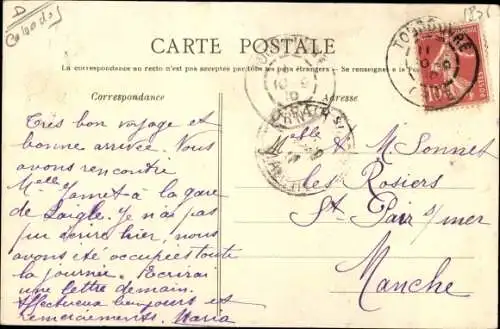 D
Calvados
CARTE POSTALE
La correspondance au recto n'est pas acceptée par tous les pays étrangers. Se renseigner à la Poste
Correspondance
Adresse
Très bon voyage et
bonne arrivée. Nous
avons rencontré
Melle Jamet à la gare
de Laigle. Je n'ai pas
pu écrire hier, nous
avons été occupées toute
la journée. Ecrirai
une lettre demain.
Affectueux bonjours et
remerciements. Maria
Melle M. Sonnet
Les Rosiers
St Pair s/mer
Manche